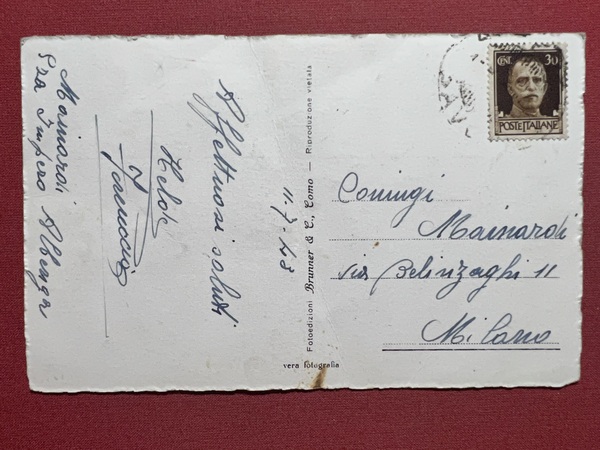 Mainardi
Pza Impero Albenga
Affettuosi saluti
11-7-43
Fotoedizioni Brunner & C., Como — Riproduzione vietata
vera fotografia
CENT 30
POSTE ITALIANE
Coniugi
Mainardi
via Belinzaghi 11
Milano